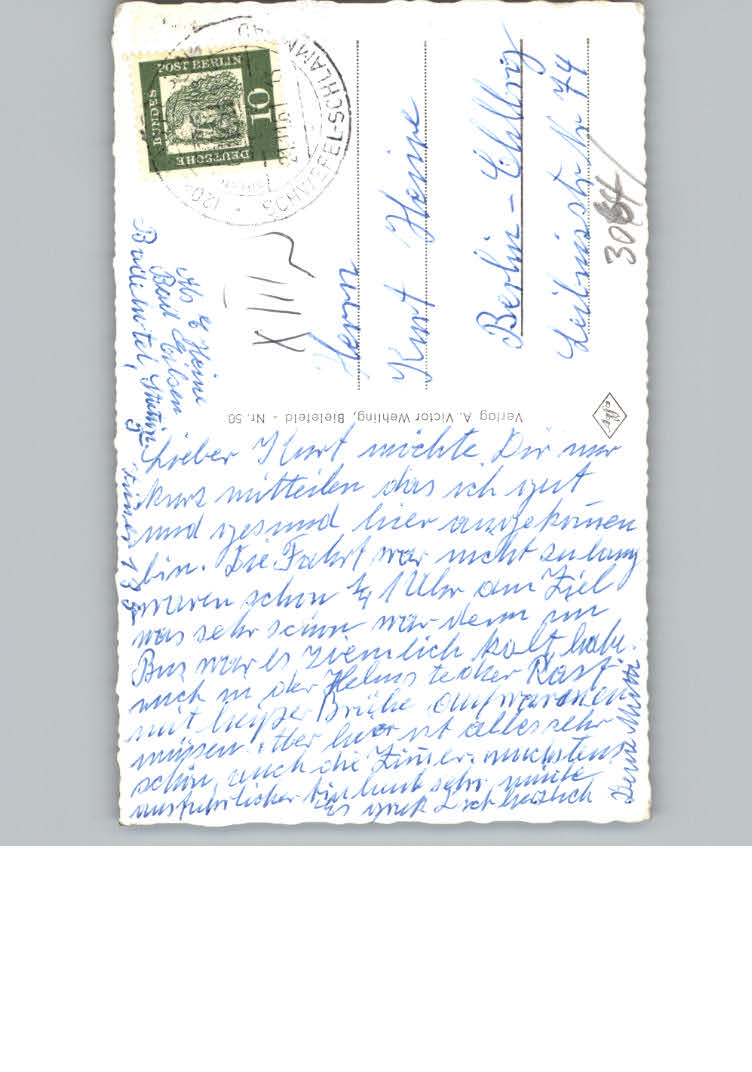 DEUTSCHE
BUNDES
POST BERLIN
10
SCHWEFEL-SCHLAMM
Abs E Heine
Bad Eilsen
Badehotel,
XIII
Herrn
Kurt Heine
Berlin - Chlbrg
Leibnizstr Nr 74
30
Verlag A. Victor Wehling, Bielefeld - Nr. 50
agfa
Lieber Kurt möchte Dir nur
kurz mitteilen das ich gut
und gesund hier angekomen
bin. Die Fahrt war nicht zu lang
waren schon 1/4 1 Uhr am Ziel
was sehr schön war denn im
Bus war es ziemlich kalt, habe
mich in der Helmstedter Rast
mit heißer Brühe aufwärmen
müßen. Aber hier ist alles sehr
schön auch die Zimer. nächstens
ausführlicher bin heute sehr müde
Es grüßt Dich herzlich
Deine Mutti